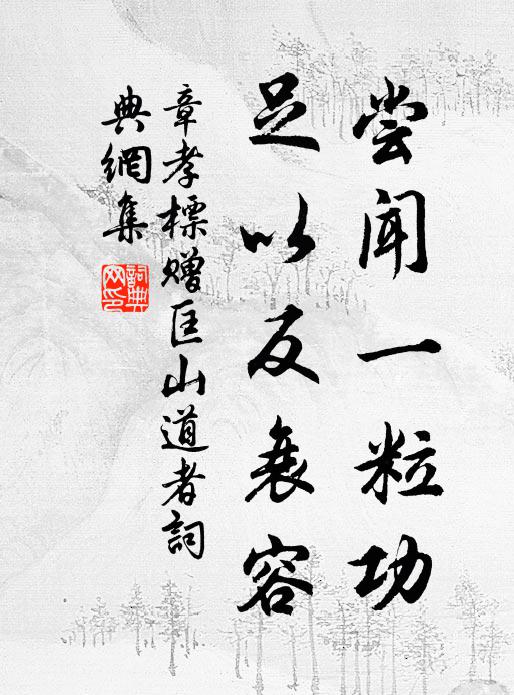 尝闻一粒功
足以反衰容
章孝標赠匡山道者詞
典網集
詞典
网印